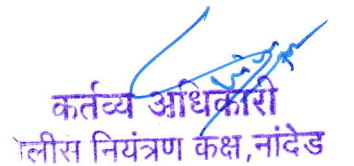 कर्तव्य अधिकारी
ोलीस नियंत्रण कक्ष,नांदेड